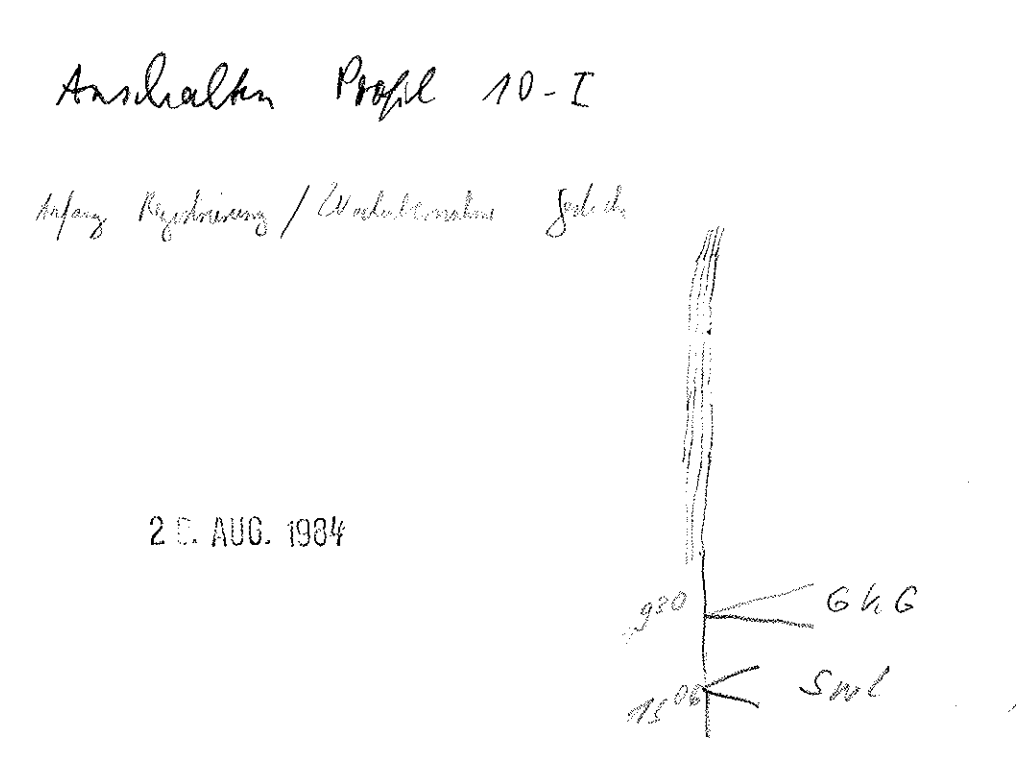 Anschalten Profil 10-I
Anfang Registrierung /
AUG. 1984
9³⁰ GKG
15⁰⁶ Sml